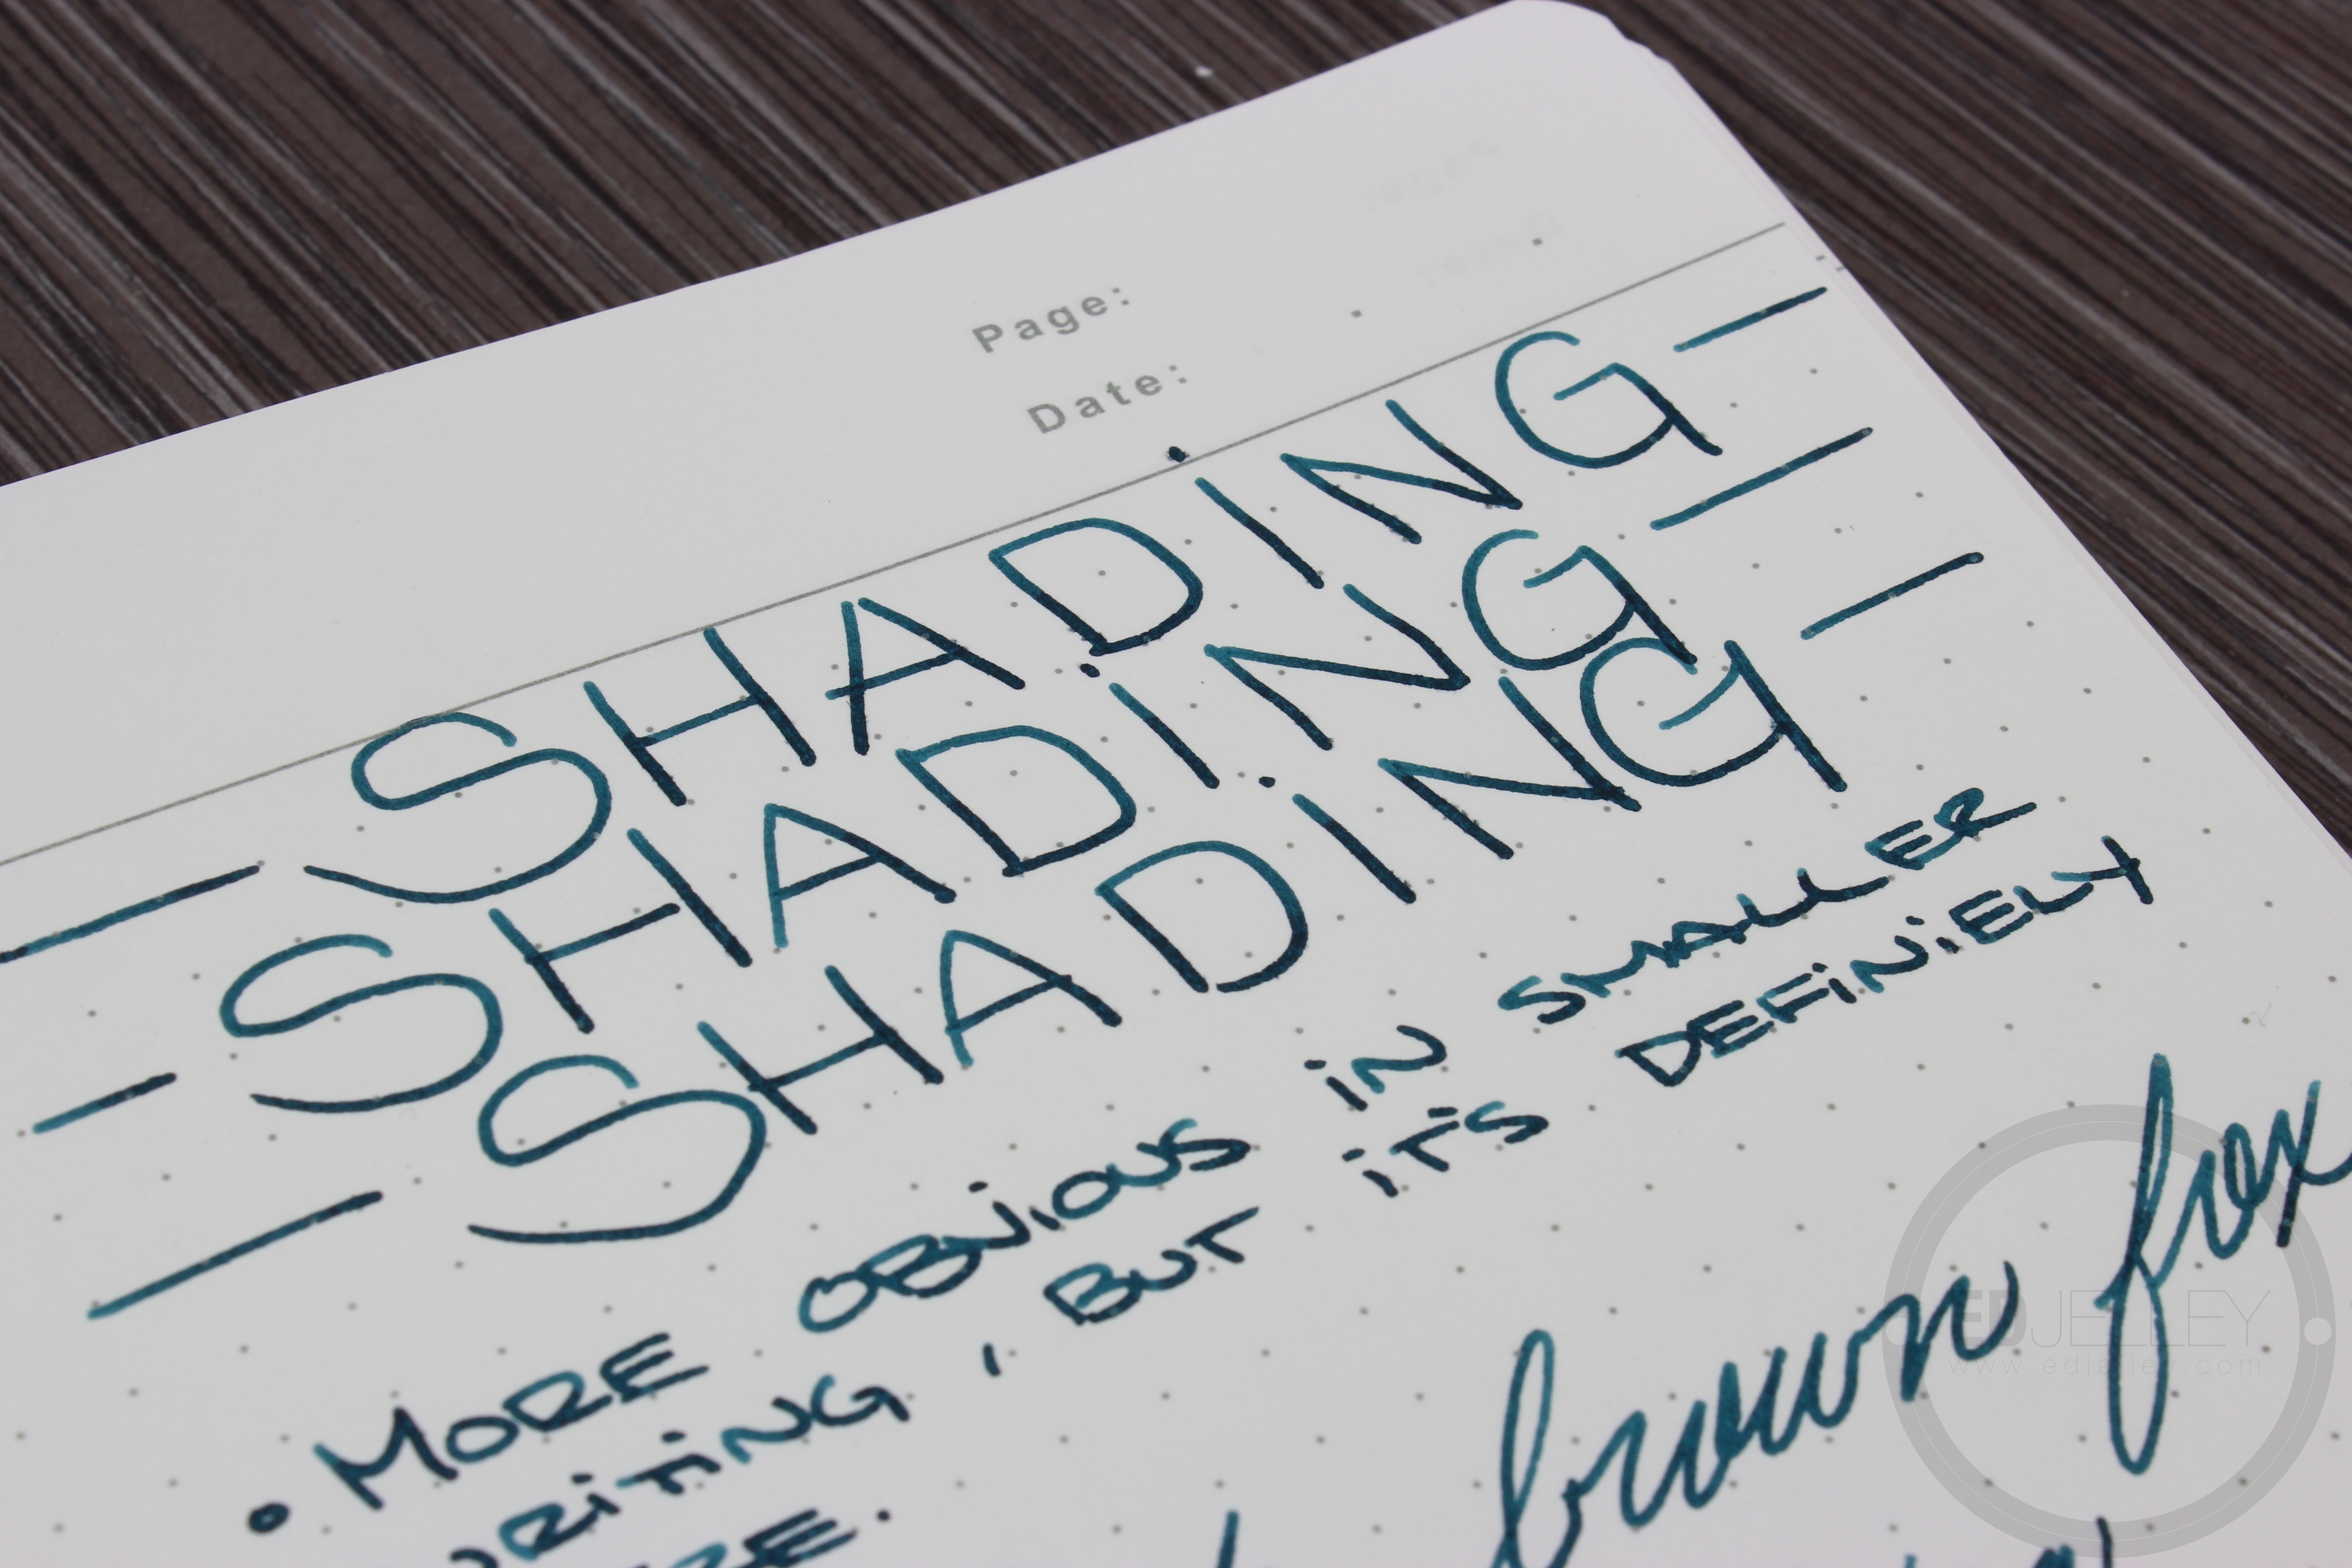 Page:
Date:
— SHADiNG —
— SHADiNG —
— SHADiNG —
• MORE OBViOUS iN SMALLER
WRiTiNG, BUT iT'S DEFiNiELY
brown fox
EDJELLEY
www.edjelley.com